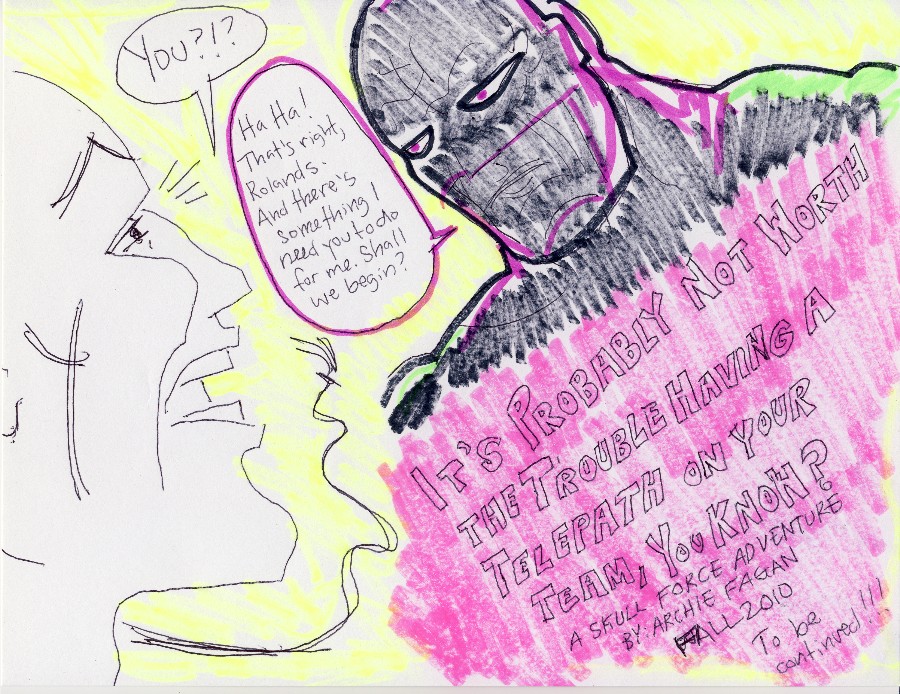 You?!?
Ha Ha!
That's right,
Rolands.
And there's
something I
need you to do
for me. Shall
we begin?
It's Probably Not Worth
the Trouble Having a
Telepath on your
Team, You Know?
A Skull Force Adventure
By: Archie Fagan
Fall 2010
To be
continued!!!